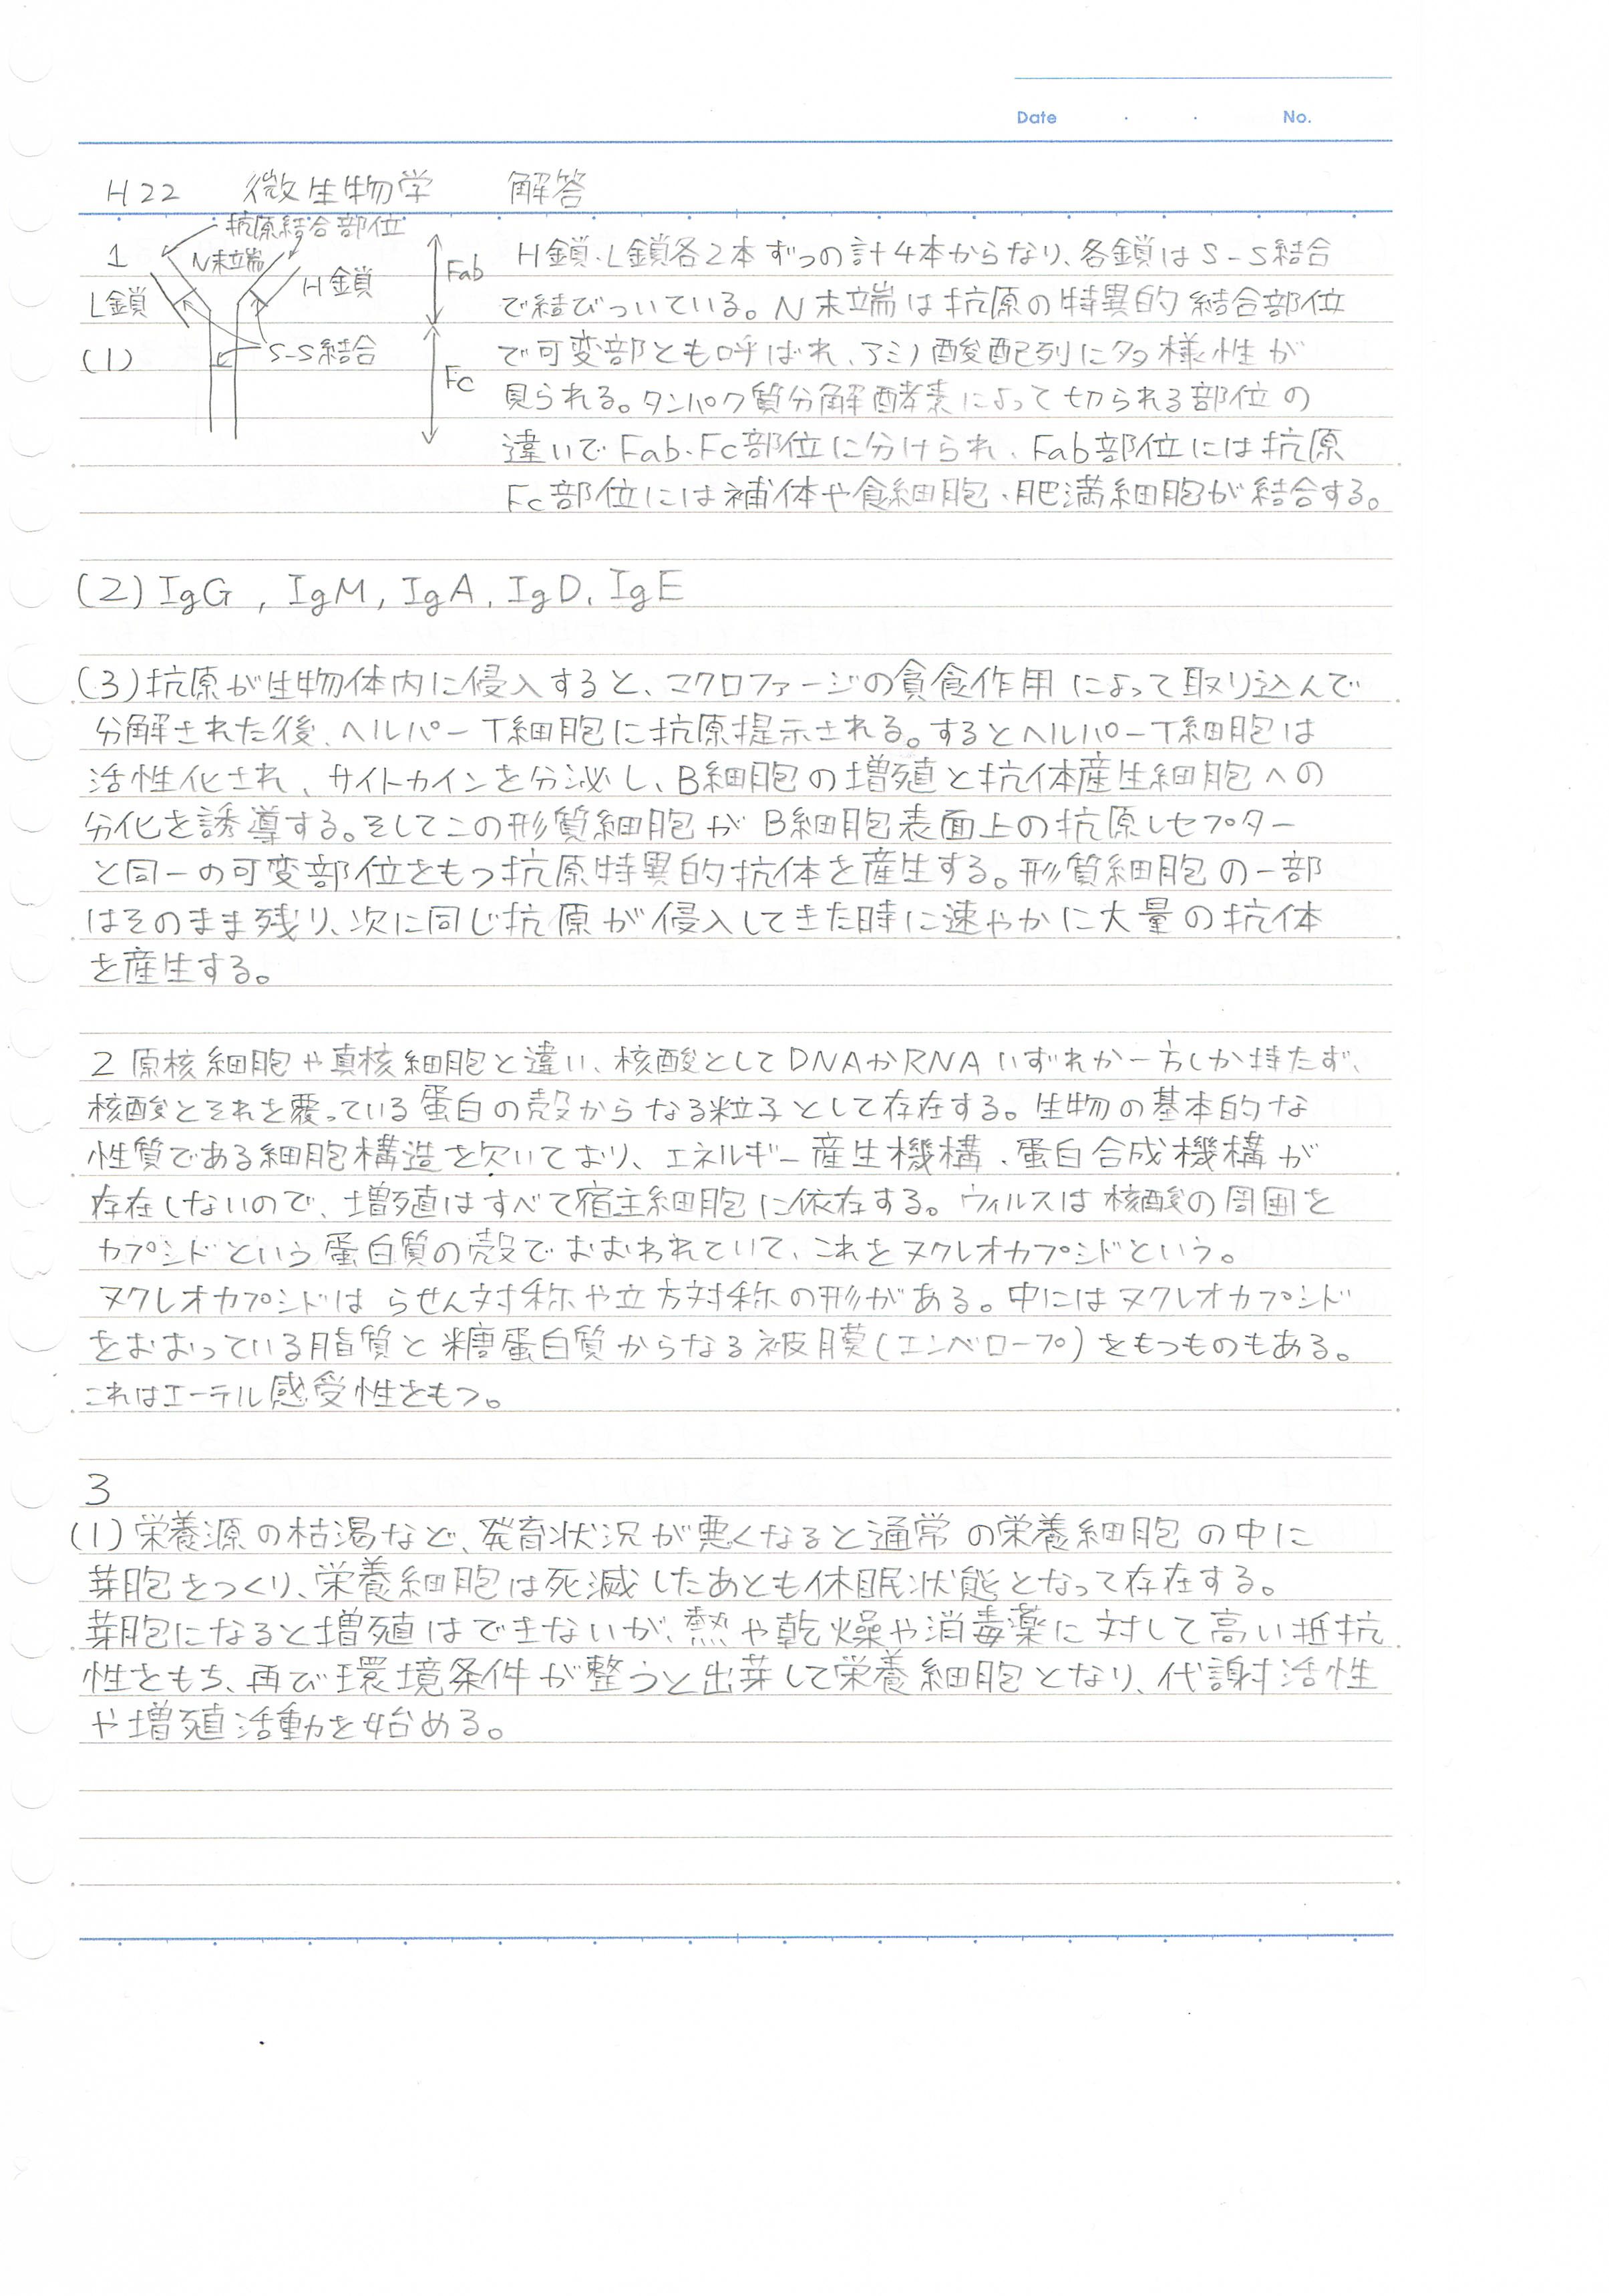 Date . . No.
H22 微生物学 解答
1
(1)
抗原結合部位
N末端
L鎖
H鎖
S-S結合
Fab
Fc
H鎖・L鎖各2本ずつの計4本からなり、各鎖はS-S結合
で結びついている。N末端は抗原の特異的結合部位
で可変部とも呼ばれ、アミノ酸配列に多様性が
見られる。タンパク質分解酵素によって切られる部位の
違いでFab・Fc部位に分けられ、Fab部位には抗原
Fc部位には補体や食細胞・肥満細胞が結合する。
(2) IgG, IgM, IgA, IgD, IgE
(3) 抗原が生物体内に侵入すると、マクロファージの貪食作用によって取り込んで
分解された後、ヘルパーT細胞に抗原提示される。するとヘルパーT細胞は
活性化され、サイトカインを分泌し、B細胞の増殖と抗体産生細胞への
分化を誘導する。そしてこの形質細胞がB細胞表面上の抗原レセプター
と同一の可変部位をもつ抗原特異的抗体を産生する。形質細胞の一部
はそのまま残り、次に同じ抗原が侵入してきた時に速やかに大量の抗体
を産生する。
2 原核細胞や真核細胞と違い、核酸としてDNAかRNAいずれか一方しか持たず、
核酸とそれを覆っている蛋白の殻からなる粒子として存在する。生物の基本的な
性質である細胞構造を欠いており、エネルギー産生機構・蛋白合成機構が
存在しないので、増殖はすべて宿主細胞に依存する。ウィルスは核酸の周囲を
カプシドという蛋白質の殻でおおわれていて、これをヌクレオカプシドという。
ヌクレオカプシドはらせん対称や立方対称の形がある。中にはヌクレオカプシド
をおおっている脂質と糖蛋白質からなる被膜(エンベロープ)をもつものもある。
これはエーテル感受性をもつ。
3
(1) 栄養源の枯渇など、発育状況が悪くなると通常の栄養細胞の中に
芽胞をつくり、栄養細胞は死滅したあとも休眠状態となって存在する。
芽胞になると増殖はできないが、熱や乾燥や消毒薬に対して高い抵抗
性をもち、再び環境条件が整うと出芽して栄養細胞となり、代謝活性
や増殖活動を始める。